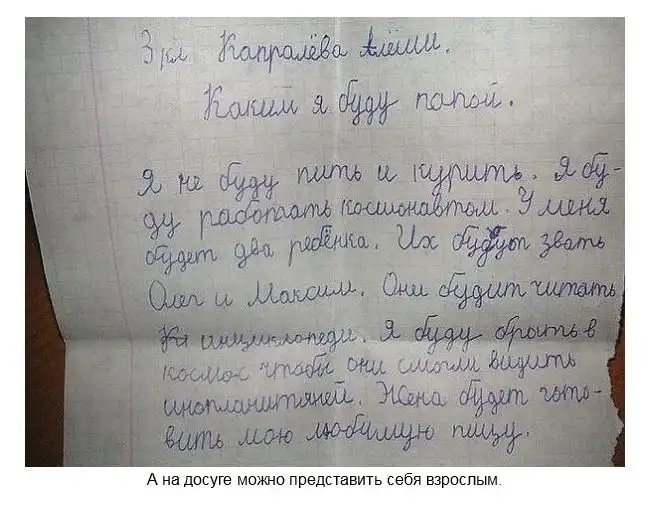 3 кл Капралёва Алёши.
Каким я буду папой.
Я не буду пить и курить. Я бу-
ду работать космонавтом. У меня
будет два ребёнка. Их будут звать
Олег и Максим. Они будит читать
инциклопеди. Я буду брать в
космос чтобы они смогли видить
инопланитяней. Жена будет гото-
вить мою любимую пищу.
А на досуге можно представить себя взрослым.